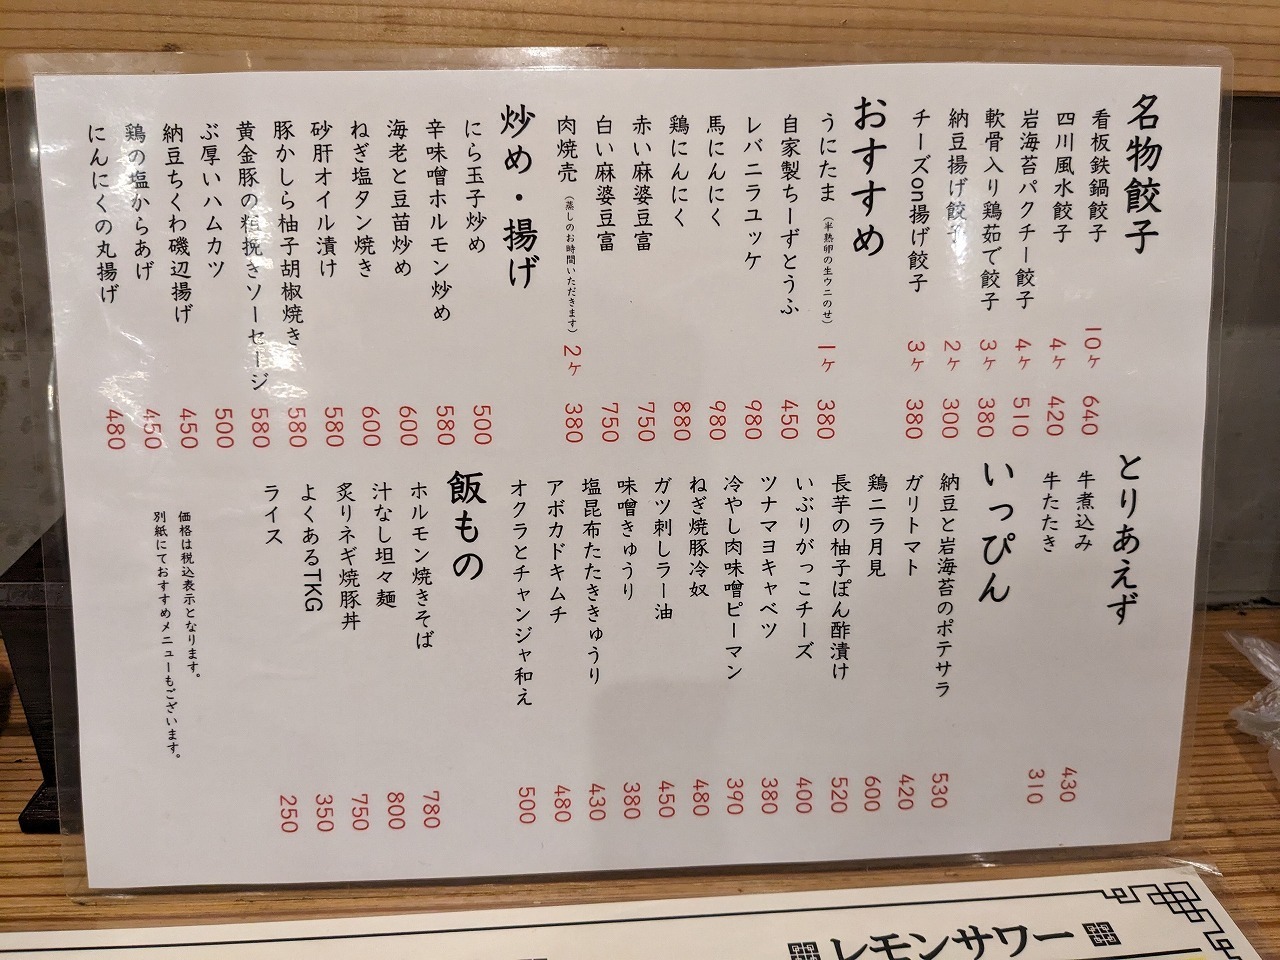 名物餃子
看板鉄鍋餃子 10ヶ 640
四川風水餃子 4ヶ 420
岩海苔パクチー餃子 4ヶ 510
軟骨入り鶏茹で餃子 3ヶ 380
納豆揚げ餃子 2ヶ 300
チーズon揚げ餃子 3ヶ 380
おすすめ
うにたま (半熟卵の生ウニのせ) 1ヶ 380
自家製ちーずとうふ 450
レバニラユッケ 980
馬にんにく 980
鶏にんにく 880
赤い麻婆豆富 750
白い麻婆豆富 750
肉焼売 (蒸しのお時間いただきます) 2ヶ 380
炒め・揚げ
にら玉子炒め 500
辛味噌ホルモン炒め 580
海老と豆苗炒め 600
ねぎ塩タン焼き 600
砂肝オイル漬け 580
豚かしら柚子胡椒焼き 580
黄金豚の粗挽きソーセージ 580
ぶ厚いハムカツ 500
納豆ちくわ磯辺揚げ 450
鶏の塩からあげ 450
にんにくの丸揚げ 480
とりあえず
牛煮込み 430
牛たたき 310
いっぴん
納豆と岩海苔のポテサラ 530
ガリトマト 420
鶏ニラ月見 600
長芋の柚子ぽん酢漬け 520
いぶりがっこチーズ 400
ツナマヨキャベツ 380
冷やし肉味噌ピーマン 390
ねぎ焼豚冷奴 480
ガツ刺しラー油 450
味噌きゅうり 380
塩昆布たたききゅうり 430
アボカドキムチ 480
オクラとチャンジャ和え 500
飯もの
ホルモン焼きそば 780
汁なし坦々麺 800
炙りネギ焼豚丼 750
よくあるTKG 350
ライス 250
価格は税込表示となります。
別紙にておすすめメニューもございます。
レモンサワー